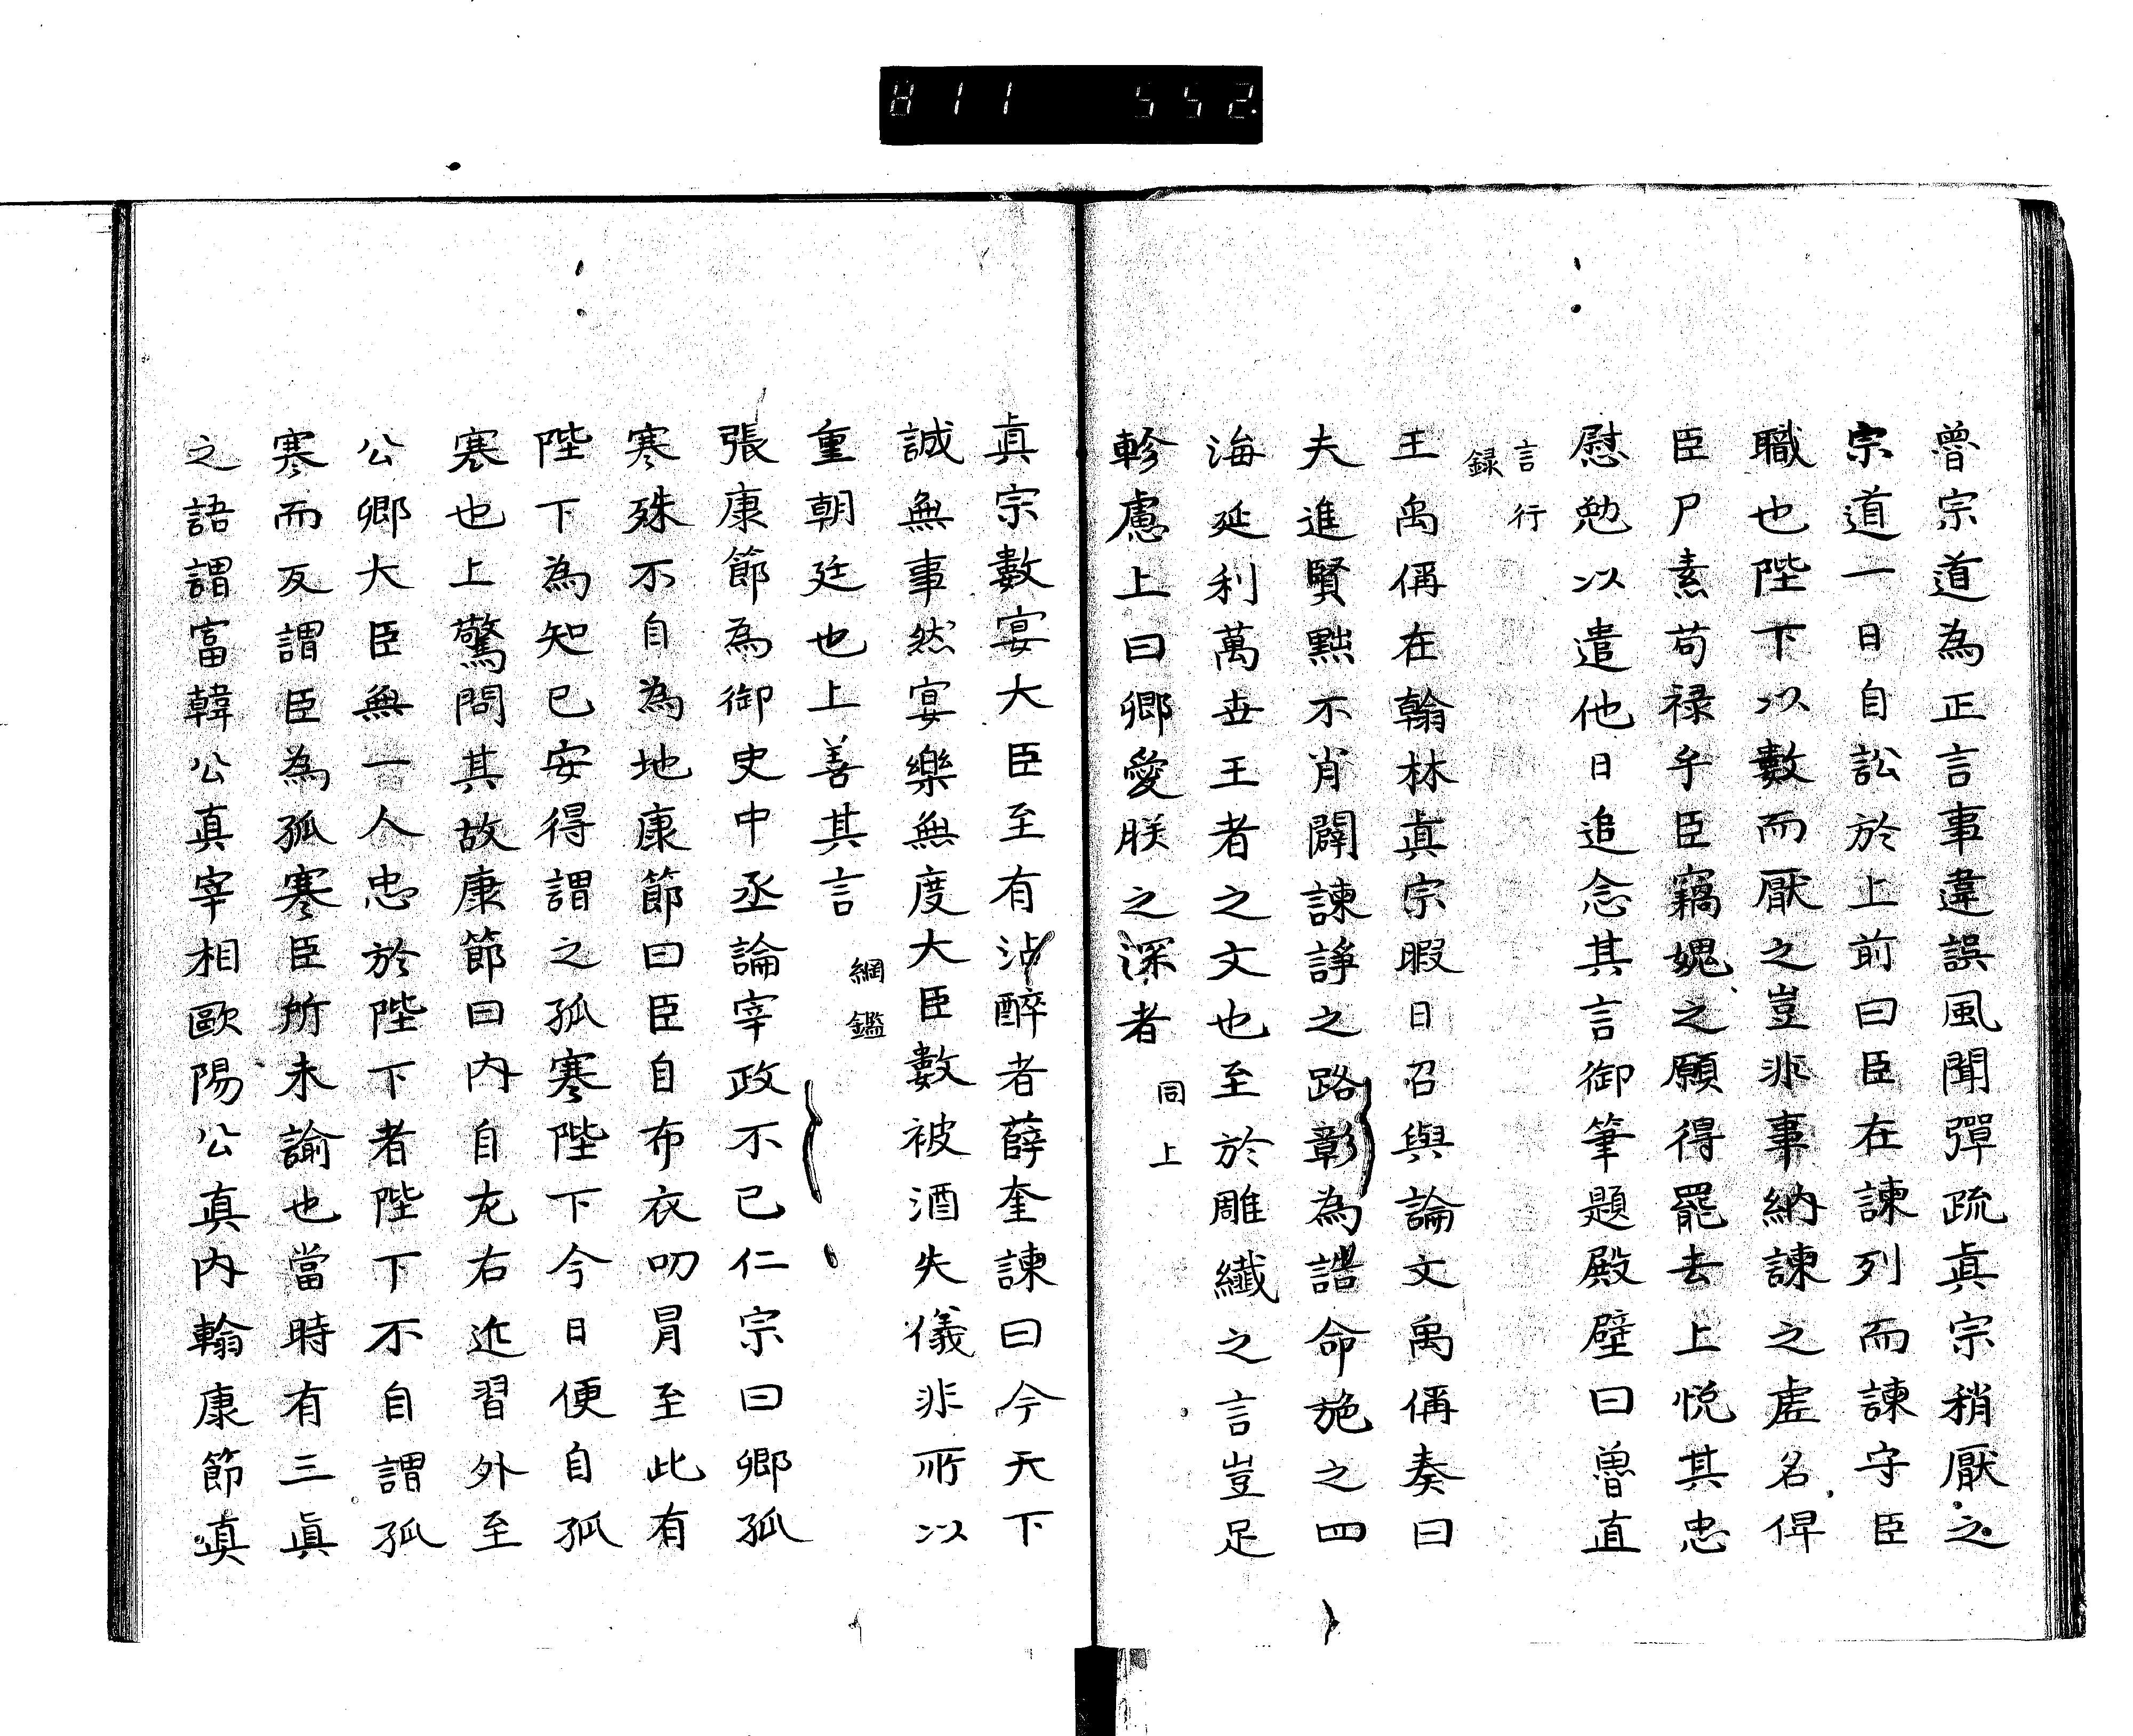 811 552.
曾宗道為正言事違誤風聞彈疏真宗稍厭之
宗道一日自訟於上前曰臣在諫列而諫守臣
職也陛下以數而厭之豈非事納諫之虛名俾
臣尸素苟禄乎臣竊媿之願得罷去上悅其忠
慰勉以遣他日追念其言御筆題殿壁曰魯直
言行
録
王禹偁在翰林真宗暇日召與論文禹偁奏曰
夫進賢黜不肖闢諫諍之路彰為誥命施之四
海延利萬世王者之文也至於雕纖之言豈足
軫慮上曰卿愛朕之深者 同上
真宗數宴大臣至有沾醉者薛奎諫曰今天下
誠無事然宴樂無度大臣數被酒失儀非所以
重朝廷也上善其言 綱鑑
張康節為御史中丞論宰政不已仁宗曰卿孤
寒殊不自為地康節曰臣自布衣叨冐至此有
陛下為知己安得謂之孤寒陛下今日便自孤
寒也上驚問其故康節曰內自左右近習外至
公卿大臣無一人忠於陛下者陛下不自謂孤
寒而反謂臣為孤寒臣所未諭也當時有三真
之語謂富韓公真宰相歐陽公真內翰康節真